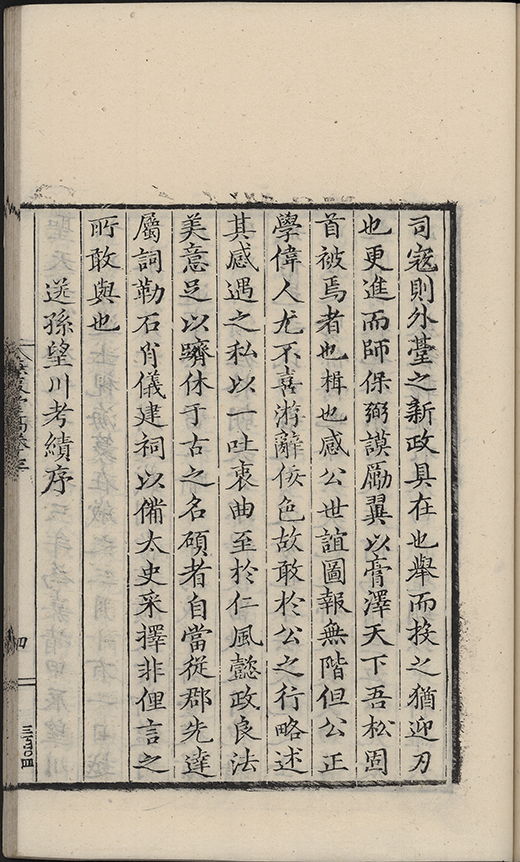 司寇則外臺之新政具在也舉而投之猶迎刃
也更進而師保弼謨勵翼以膏澤天下吾松固
首被焉者也楫也感公世誼圖報無階但公正
學偉人尤不喜游辭佞色故敢於公之行略述
其感遇之私以一吐衷曲至於仁風懿政良法
美意足以躋休于古之名碩者自當從郡先達
屬詞勒石肖儀建祠以備太史采擇非俚言之
所敢與也
送孫望川考績序
四